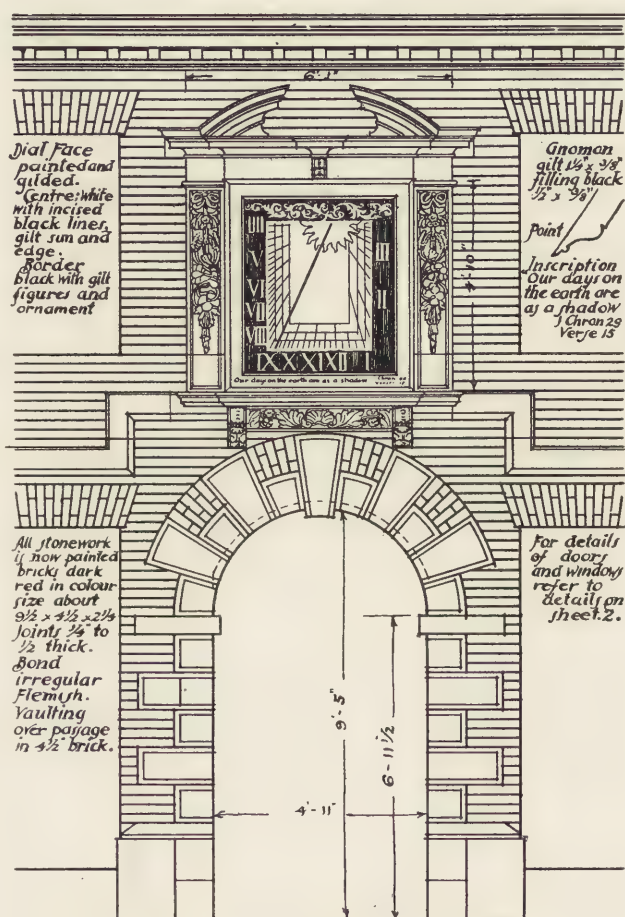 6'-1"
Dial Face
painted and
gilded.
Centre: white
with incised
black lines,
gilt sun and
edge.
Border
black with gilt
figures and
ornament
Gnomon
gilt 1¼" x ⅜"
filling black
½ x ⅜"
Point
Inscription
Our days on
the earth are
as a shadow
1 Chron 29
Verse 15
4'-10"
IIII
V
VI
VII
VIII
IX X XI XII I
II
III
Our days on the earth are as a shadow
All stonework
is now painted
bricks dark
red in colour
size about
9½ x 4½ x 2¼
joints ¼" to
½ thick.
Bond
irregular
Flemish.
Vaulting
over passage
in 4½" brick.
For details
of doors
and windows
refer to
details on
sheet. 2.
9'-5"
6-11½
4'-11"